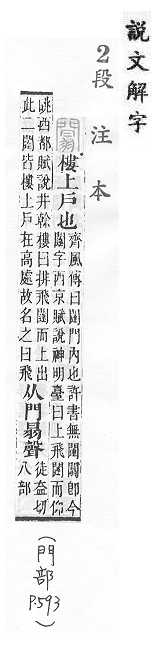 說文解字
2段注本
闒 樓上戶也
齊風傳曰闥門內也許書無闥闒卽今
闥字西京賦說神明臺曰上飛闥而仰
眺西都賦說井榦樓曰排飛闥而上出
此二闥皆樓上戶在高處故名之曰飛
从門𦐇聲
徒盍切
八部
(門部 P.593)